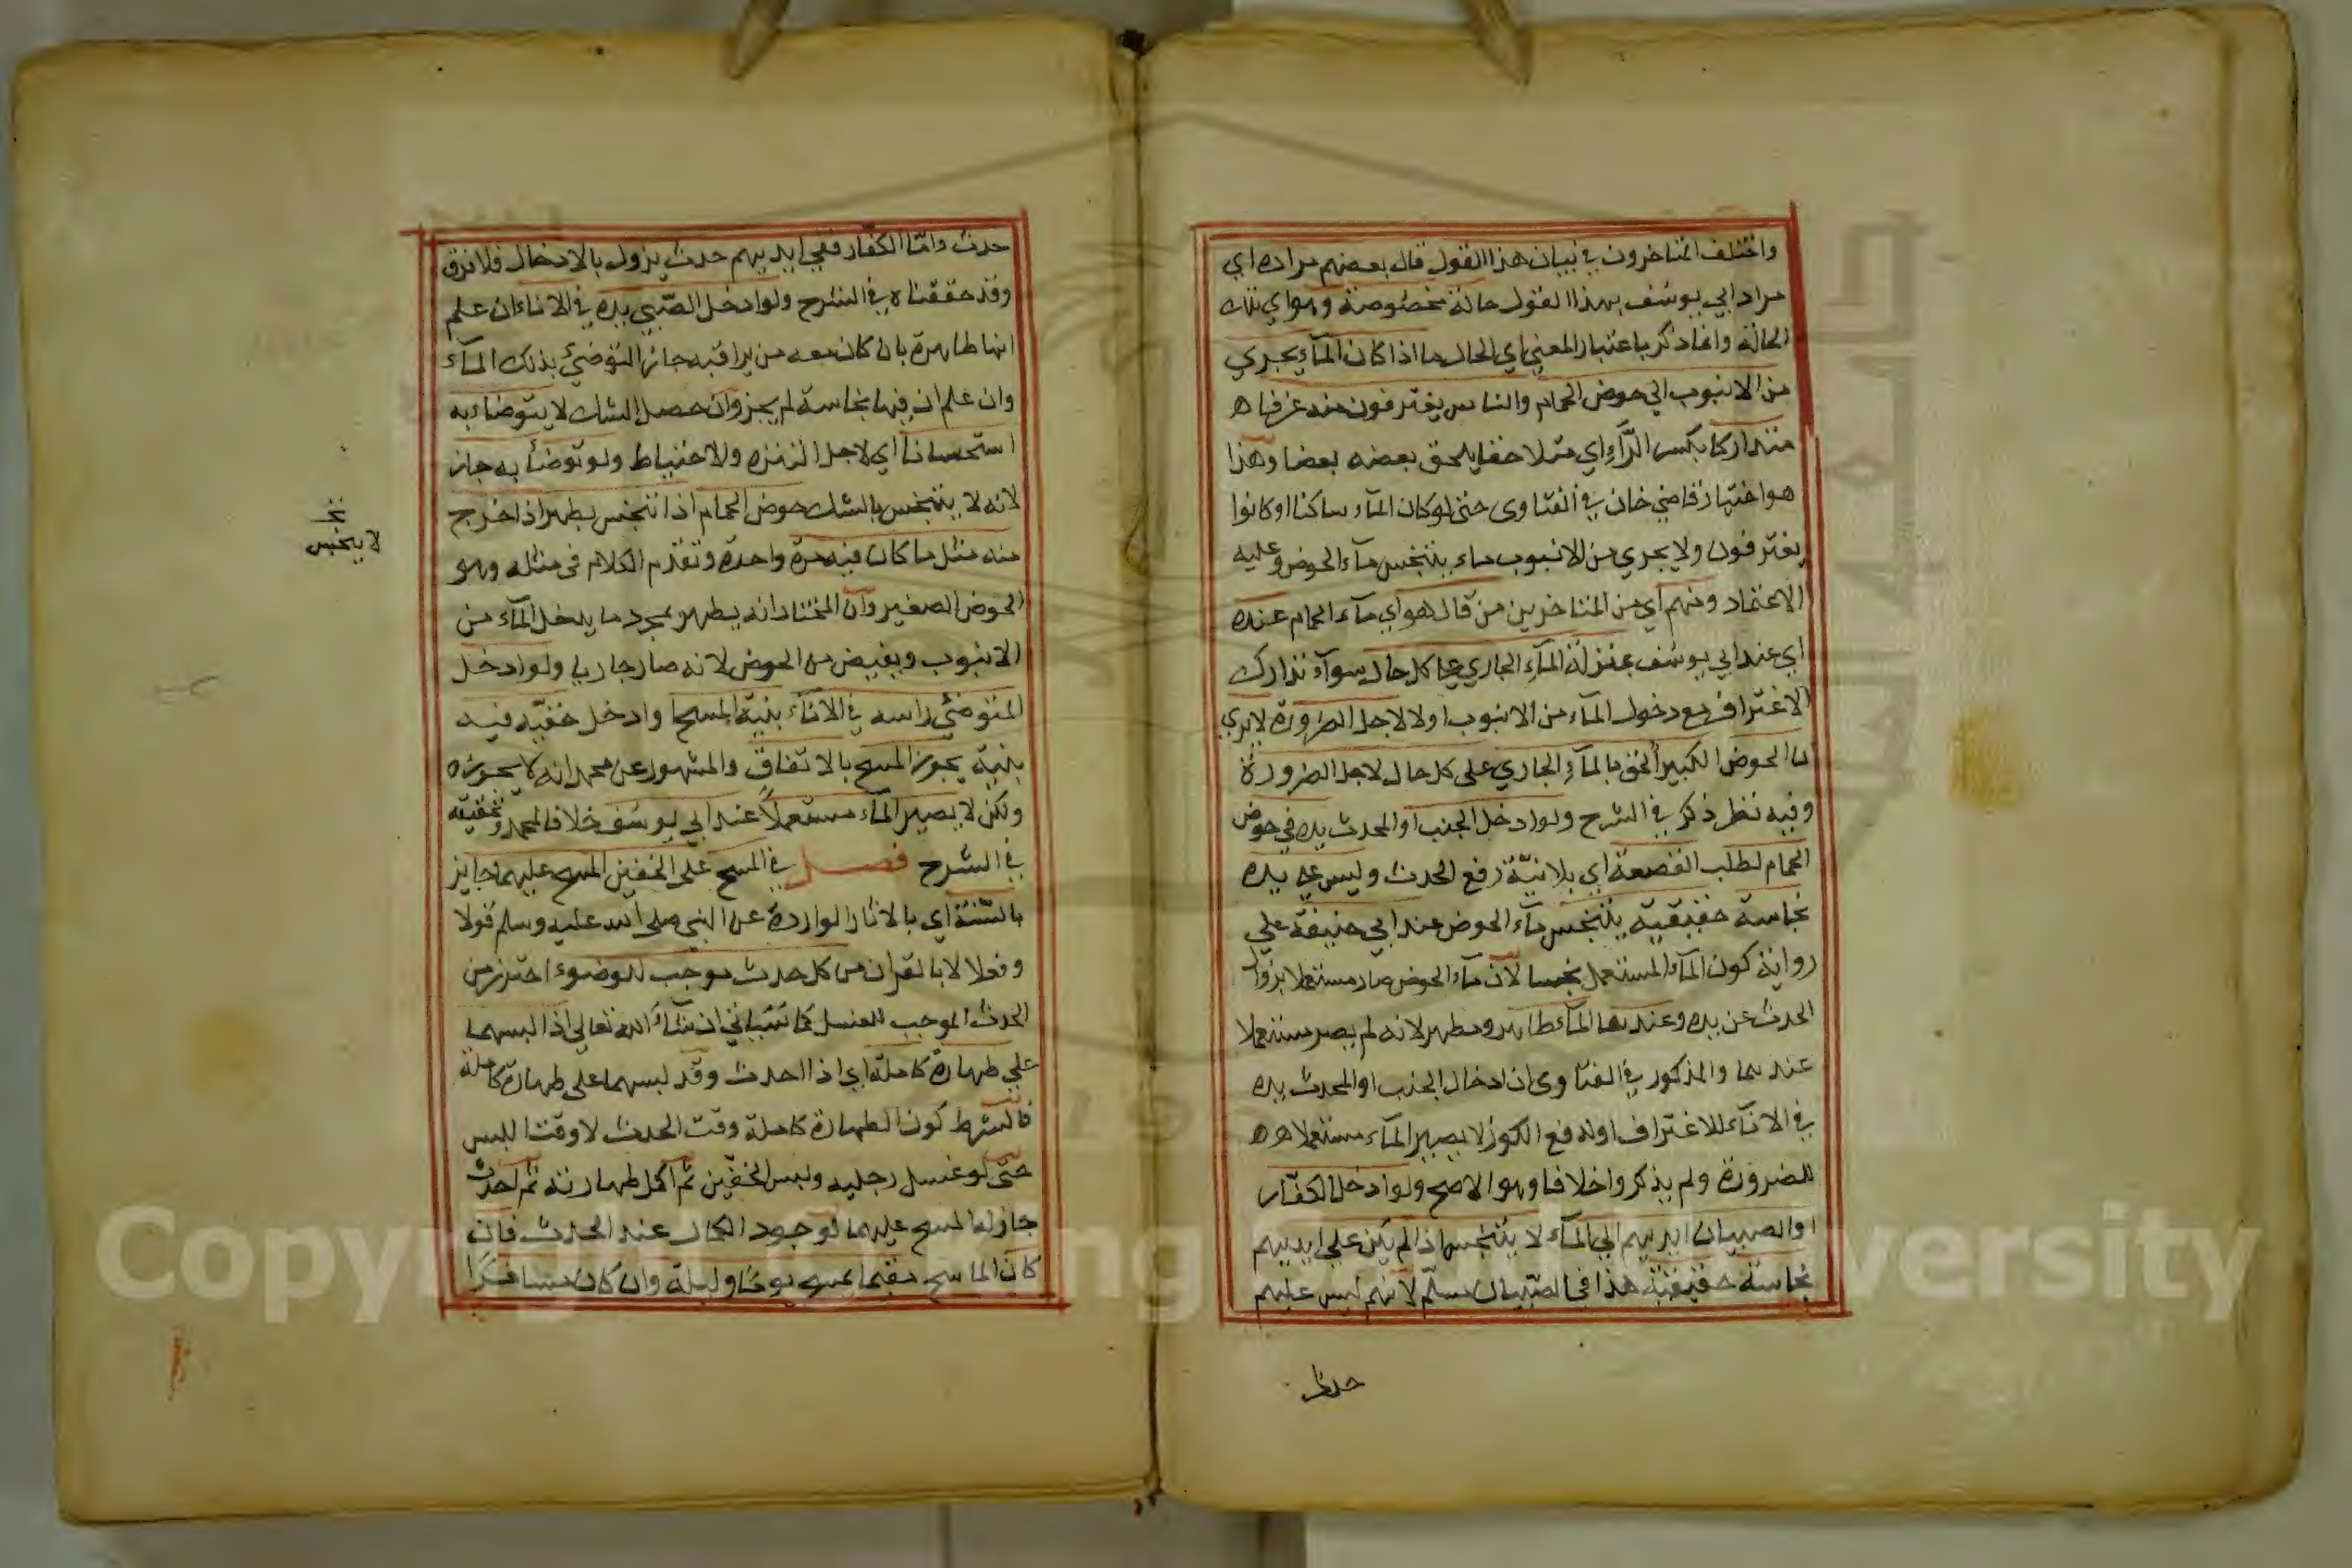 واختلف المتاخرون في بيان هذا القول قال بعضهم مراده اي
مراد ابي يوسف بهذا القول حالة مخصوصة وهو اي تلك
الحالة وانما ذكر باعتبار المعني اي الحال ما اذا كان المآء يجري
من الانبوب الي حوض الحمام والناس يغترفون منه غرفا
متداركا بكسر الرّآء اي متلاحقا يلحق بعضه بعضا وهذا
هو اختيار قاضي خان في الفتاوى حتى لو كان المآء ساكنا او كانوا
يغترفون ولا يجري من الانبوب ماء يتنجس مآء الحوض وعليه
الاعتماد ومنهم اي من المتاخرين من قال هو اي مآء الحمام عنده
اي عند ابي يوسف بمنزلة المآء الجاري علي كل حال سوآء تدارك
الاغتراف مع دخول المآء من الانبوب اولا لاجل الضرورة الا يري
ان الحوض الكبير ألحق بالمآء الجاري على كل حال لاجل الضرورة
وفيه نظر ذكر في الشرح ولو ادخل الجنب او المحدث يده في حوض
الحمام لطلب القصعة اي بلا نيّة رفع الحدث وليس علي يده
نجاسة حقيقية يتنجس مآء الحوض عند ابي حنيفة علي
رواية كون المآء المستعمل نجسا لان مآء الحوض صار مستعملا بزوال
الحدث عن يده وعندهما المآء طاهر ومطهر لانه لم يصر مستعملا
عندهما والمذكور في الفتاوى ان ادخال الجنب او المحدث يده
في الانآء للاغتراف او لدفع الكوز لا يصير المآء مستعملا
للضرورة ولم يذكروا خلافا وهو الاصح ولو ادخل الكفّار
او الصبيان ايديهم الي المآء لا يتنجس اذا لم يكن علي ايديهم
نجاسة حقيقية هذا في الصّبيان مسلّم لانهم ليس عليهم
حدث
حدث وامّا الكفّار ففي ايديهم حدث يزول بالادخال فلا فرق
وقد حققناه في الشرح ولو ادخل الصّبي يده في الاناء ان علم
انها طاهرة بان كان معه من يراقبه جاز التوضئ بذلك المآء
وان علم ان فيها نجاسة لم يجز وان حصل الشك لا يتوضاء به
استحسانا اي لاجل التنزه والاحتياط ولو توضأ به جاز
لانه لا يتنجس بالشك حوض الحمام اذا تنجس يطهر اذا خرج
منه مثل ما كان فيه مرة واحدة وتقدم الكلام في مثله وهو
الحوض الصغير وان المختار انه يطهر بمجرد ما يدخل المآء من
الانبوب ويفيض من الحوض لانه صار جاريا ولو ادخل
المتوضئ راسه في الانآء بنية المسح او ادخل خفيّه فيه
بنية يجوز المسح بالاتفاق والمشهور عن محمد انه لا يجوزه
ولكن لا يصير المآء مستعملاً عند ابي يوسف خلافا لمحمد وتحقيقه
في الشرح فصل في المسح على الخفين المسح عليهما جايز
بالسّنة اي بالاثار الواردة عن النبي صلى الله عليه وسلم قولا
وفعلا لا بالقران من كل حدث موجب للوضوء احترز من
الحدث الموجب للغسل كما سياتي ان شآء الله تعالي اذا البسهما
علي طهارة كاملة اي اذا احدث وقد لبسهما على طهارة كاملة
فالشرط كون الطهارة كاملة وقت الحدث لا وقت اللبس
حتى لو غسل رجليه ولبس الخفّين ثم اكمل طهارته ثم احدث
جاز له المسح عليهما لوجود الكمال عند الحدث فان
كان الماسح مقيما يمسح يوما وليلة وان كان مسافرا
لا ينجس
Copyright © King Saud University